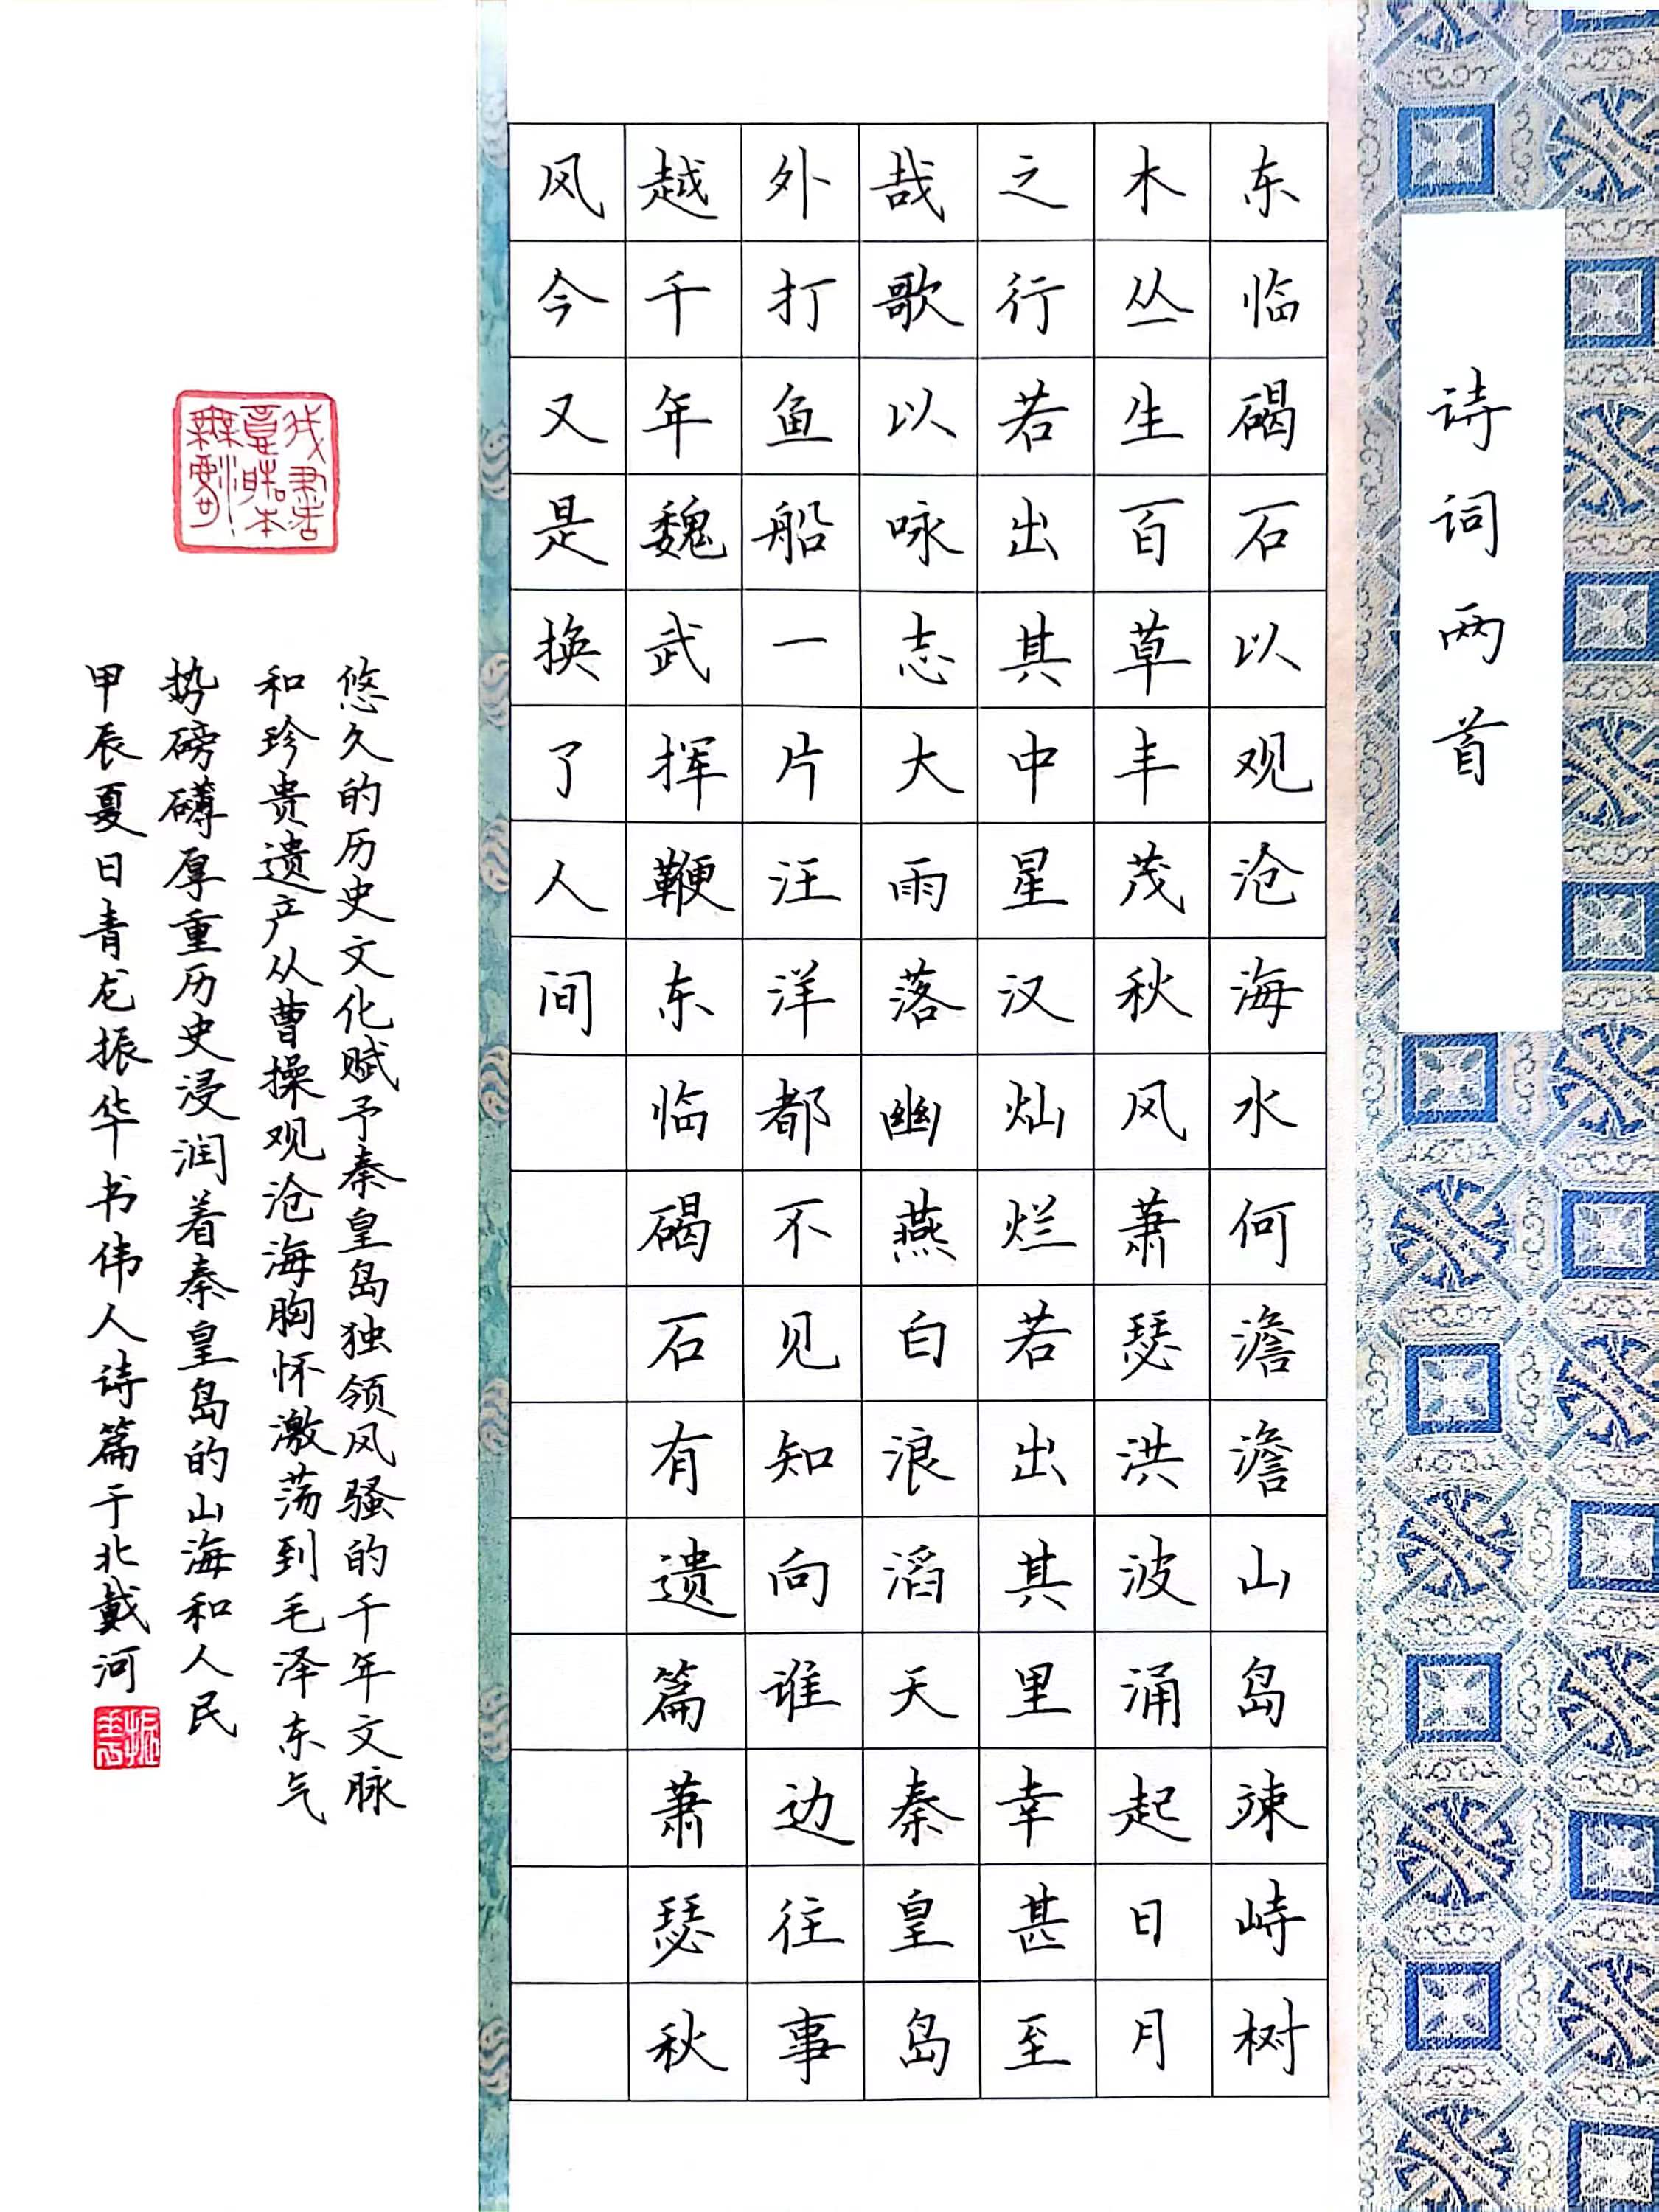 诗词两首
东临碣石以观沧海水何澹澹山岛竦峙树
木丛生百草丰茂秋风萧瑟洪波涌起日月
之行若出其中星汉灿烂若出其里幸甚至
哉歌以咏志大雨落幽燕白浪滔天秦皇岛
外打鱼船一片汪洋都不见知向谁边往事
越千年魏武挥鞭东临碣石有遗篇萧瑟秋
风今又是换了人间
悠久的历史文化赋予秦皇岛独领风骚的千年文脉
和珍贵遗产从曹操观沧海胸怀激荡到毛泽东气
势磅礴厚重历史浸润着秦皇岛的山海和人民
甲辰夏日青龙振华书伟人诗篇于北戴河